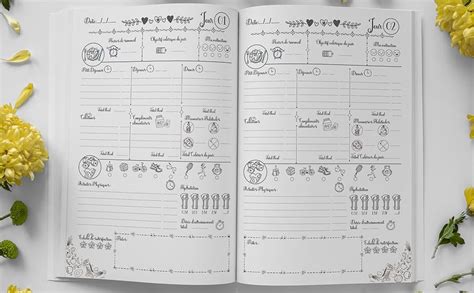 Date:
Jour 01
Heures de sommeil
Objectif calorique du jour
Mon intention
Petit Déjeuner
Déjeuner
Diner
Total kcal
Total kcal
Total kcal
Collations
Compléments alimentaires
Mauvaises Habitudes
Total kcal
Total Calories du jour
Activités Physiques
Hydratation
Échelle de satisfaction
Notes
Date:
Jour 02
Heures de sommeil
Objectif calorique du jour
Mon intention
Petit Déjeuner
Déjeuner
Diner
Total kcal
Total kcal
Total kcal
Collations
Compléments alimentaires
Mauvaises Habitudes
Total kcal
Total Calories du jour
Activités Physiques
Hydratation
Notes
Échelle de satisfaction